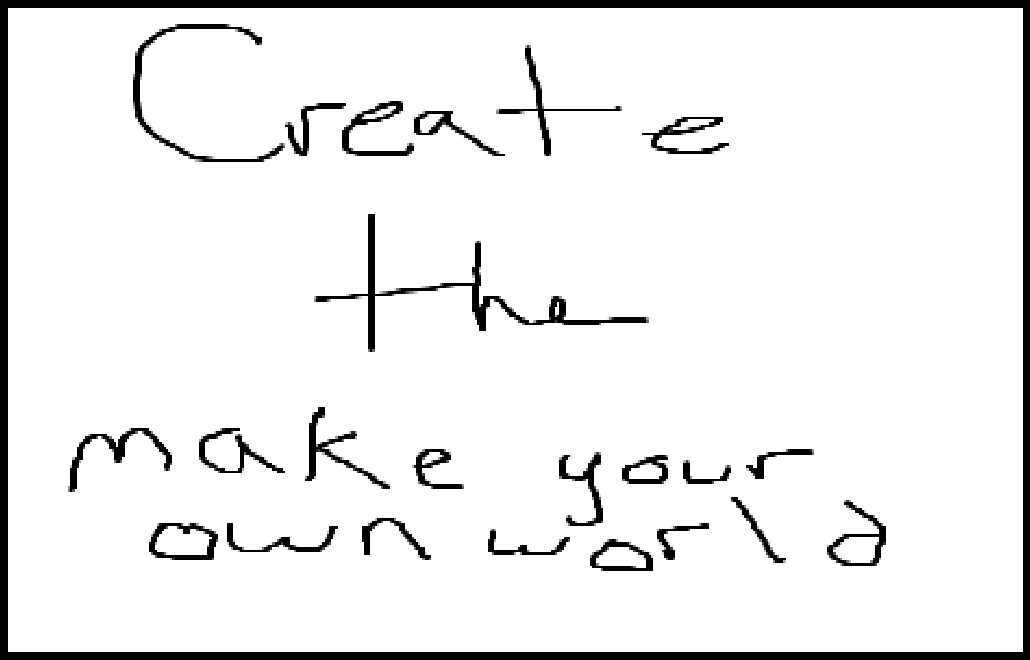 Create
the
make your
own world